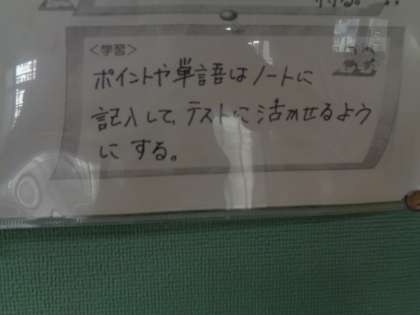 <学習>
ポイントや単語はノートに
記入して、テストに活かせるよう
にする。